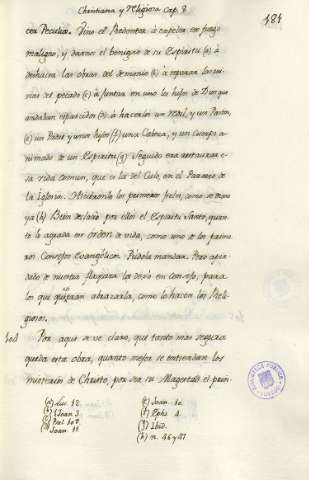 Christiana y Religiosa Cap. 8
484
cia Peculiar. Vino el Redentor à expeler un fuego
maligno, y darnos el benigno de su Espiritu (a) à
deshacer las obras del demonio (b) à reparar las rui-
nas del pecado (c) à juntar en uno los hijos de Dios que
andaban esparcidos (d) à hacerlos un redil, y un Pastor,
(e) un Padre y unos hijos (f) una Cabeza, y un Cuerpo a-
nimado de un Espiritu (g) Seguido era entaurar e-
sa vida comun, que es la del Cielo, en el Paraiso de
la Iglesia. Hicieronlo los primeros fieles, como se
ya (h) Bien declaró por ellos el Espiritu Santo, quan-
to le agrada ese orden de vida, como uno de los prime-
ros Consejos Evangélicos. Pudola mandar. Pero apia-
dado de nuestra flaqueza la dexó en consejo, para
los que quisieran abrazarla, como lo hacen los Reli-
giosos.
Por aqui se ve claro, que tanto mas segura
queda esta obra, quanto mejor se entiendan los
misterios de Christo, por ser su Magestad el prin-
(a) Luc. 12.
(b) 1 Joan 3
(c) Psal 109
(d) Joan 11
(e) Joan 10
(f) Ephs 4.
(g) Ibid.
(h) n. 46 y 47